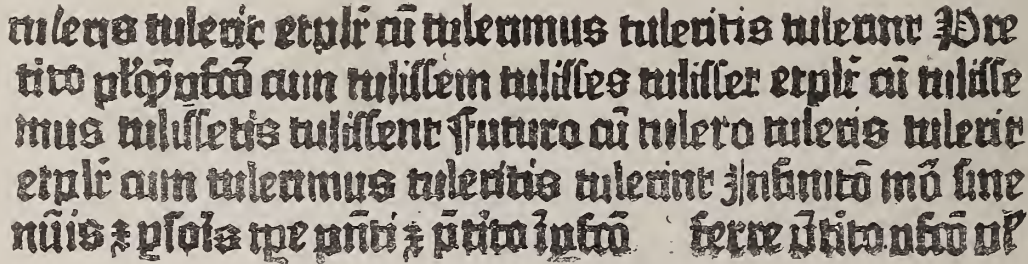 tuleris tulerit etplr̄ cū tulerimus tuleritis tulerint Pre
tito plq̄ꝑfcō cum tulissem tulisses tulisset etplr̄ cū tulisse
mus tulissetis tulissent Futuro cū tulero tuleris tulerit
etplr̄ cum tulerimus tuleritis tulerint Infinitō mō sine
nūis ⁊ ꝑsoīs tꝑe pn̄ti ⁊ p̄tito īꝑfcō ferre p̄tito ꝑfcō